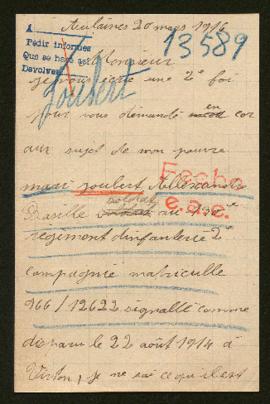 Aulaines 20 mars 1916
A
Pedir informes
Que se hace
Devolver
13589
Monsieur
je vous ecrit une 2e foi
Joubert
pour vous demandé en cor
au sujet de mon pauvre
mari Joubert Allexandre
Fecho
e.a.c.
Basille soldat au
regiment d'infanterie 2e
compagnie matriculle
966/12622 signallé comme
disparu le 22 août 1914 à
Virton, je ne sai ce qu'il est